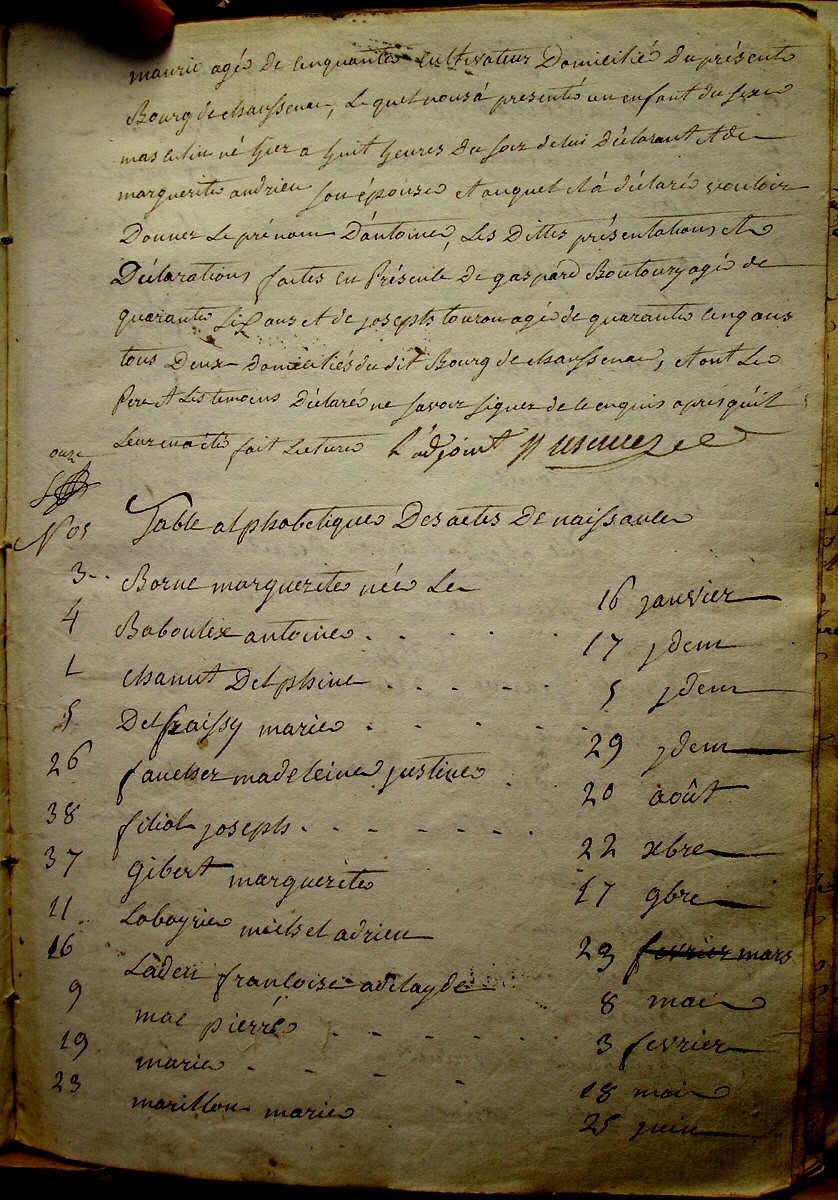 mauric agé de cinquante cultivateur Domicilié du présent
Bourg de chaussenac, Le quel nous à presenté un enfant du sexe
masculin né hier a huit heures Du soir de lui Déclarant et de
marguerite andrieu son épouse et auquel il à déclaré vouloir
Donner Le prénom D'antoine, Les Dittes présentations et
Déclarations faites en Présence de gaspard Boutoury agé de
quarante six ans et de joseph touron agé de quarante cinq ans
tous Deux Domiciliés du dit Bourg de chaussenac, et ont Le
Pere et Les temoins Déclaré ne savoir signer de ce enquis après qu'il
Leur en a été fait Lecture L'adjoint
onze
Nos Table alphabetique Des actes De naissance
3 Borne marguerite née Le 16 janvier
4 Baboulix antoine 17 jdem
1 chanut Delphine 5 jdem
5 Delfraissy marie 29 jdem
26 faucher madeleine justine 20 août
38 filiol joseph 22 xbre
37 gibert marguerite 17 gbre
11 Laboyrie michel adrien 23 fevrier mars
16 Laden francoise adelayde 8 mai
9 mac pierre 3 fevrier
19 marie 18 mai
23 marillou marie 25 juin